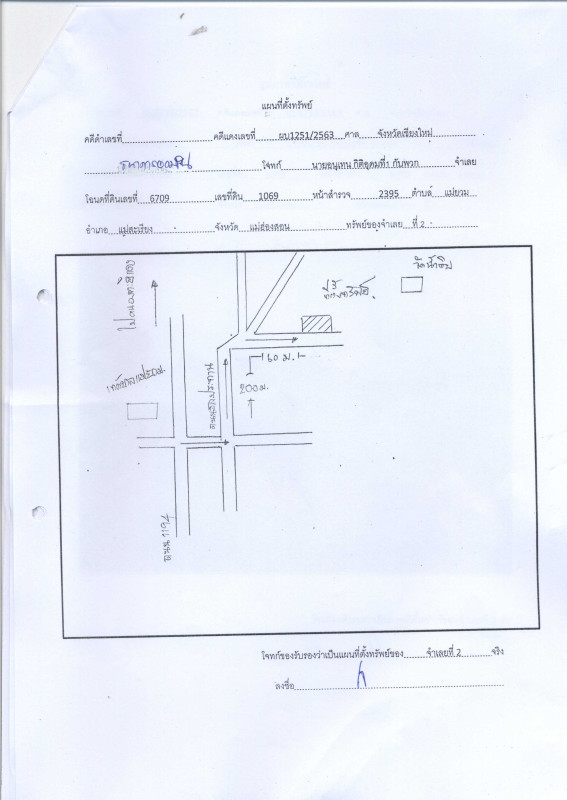 แผนที่ตั้งทรัพย์
คดีดำเลขที่ คดีแดงเลขที่ ผบ1251/2563 ศาล จังหวัดเชียงใหม่
ธนาคารออมสิน โจทก์ นายอนุเทน กิติอุดมที่1 กับพวก จำเลย
โฉนดที่ดินเลขที่ 6709 เลขที่ดิน 1069 หน้าสำรวจ 2395 ตำบล แม่ยวม
อำเภอ แม่สะเรียง จังหวัด แม่ฮ่องสอน ทรัพย์ของจำเลย ที่ 2
ที่ตั้งทรัพย์
60 ม.
200 ม.
ถนน 1194
โจทก์ขอรับรองว่าเป็นแผนที่ตั้งทรัพย์ของ จำเลยที่ 2 จริง
ลงชื่อ